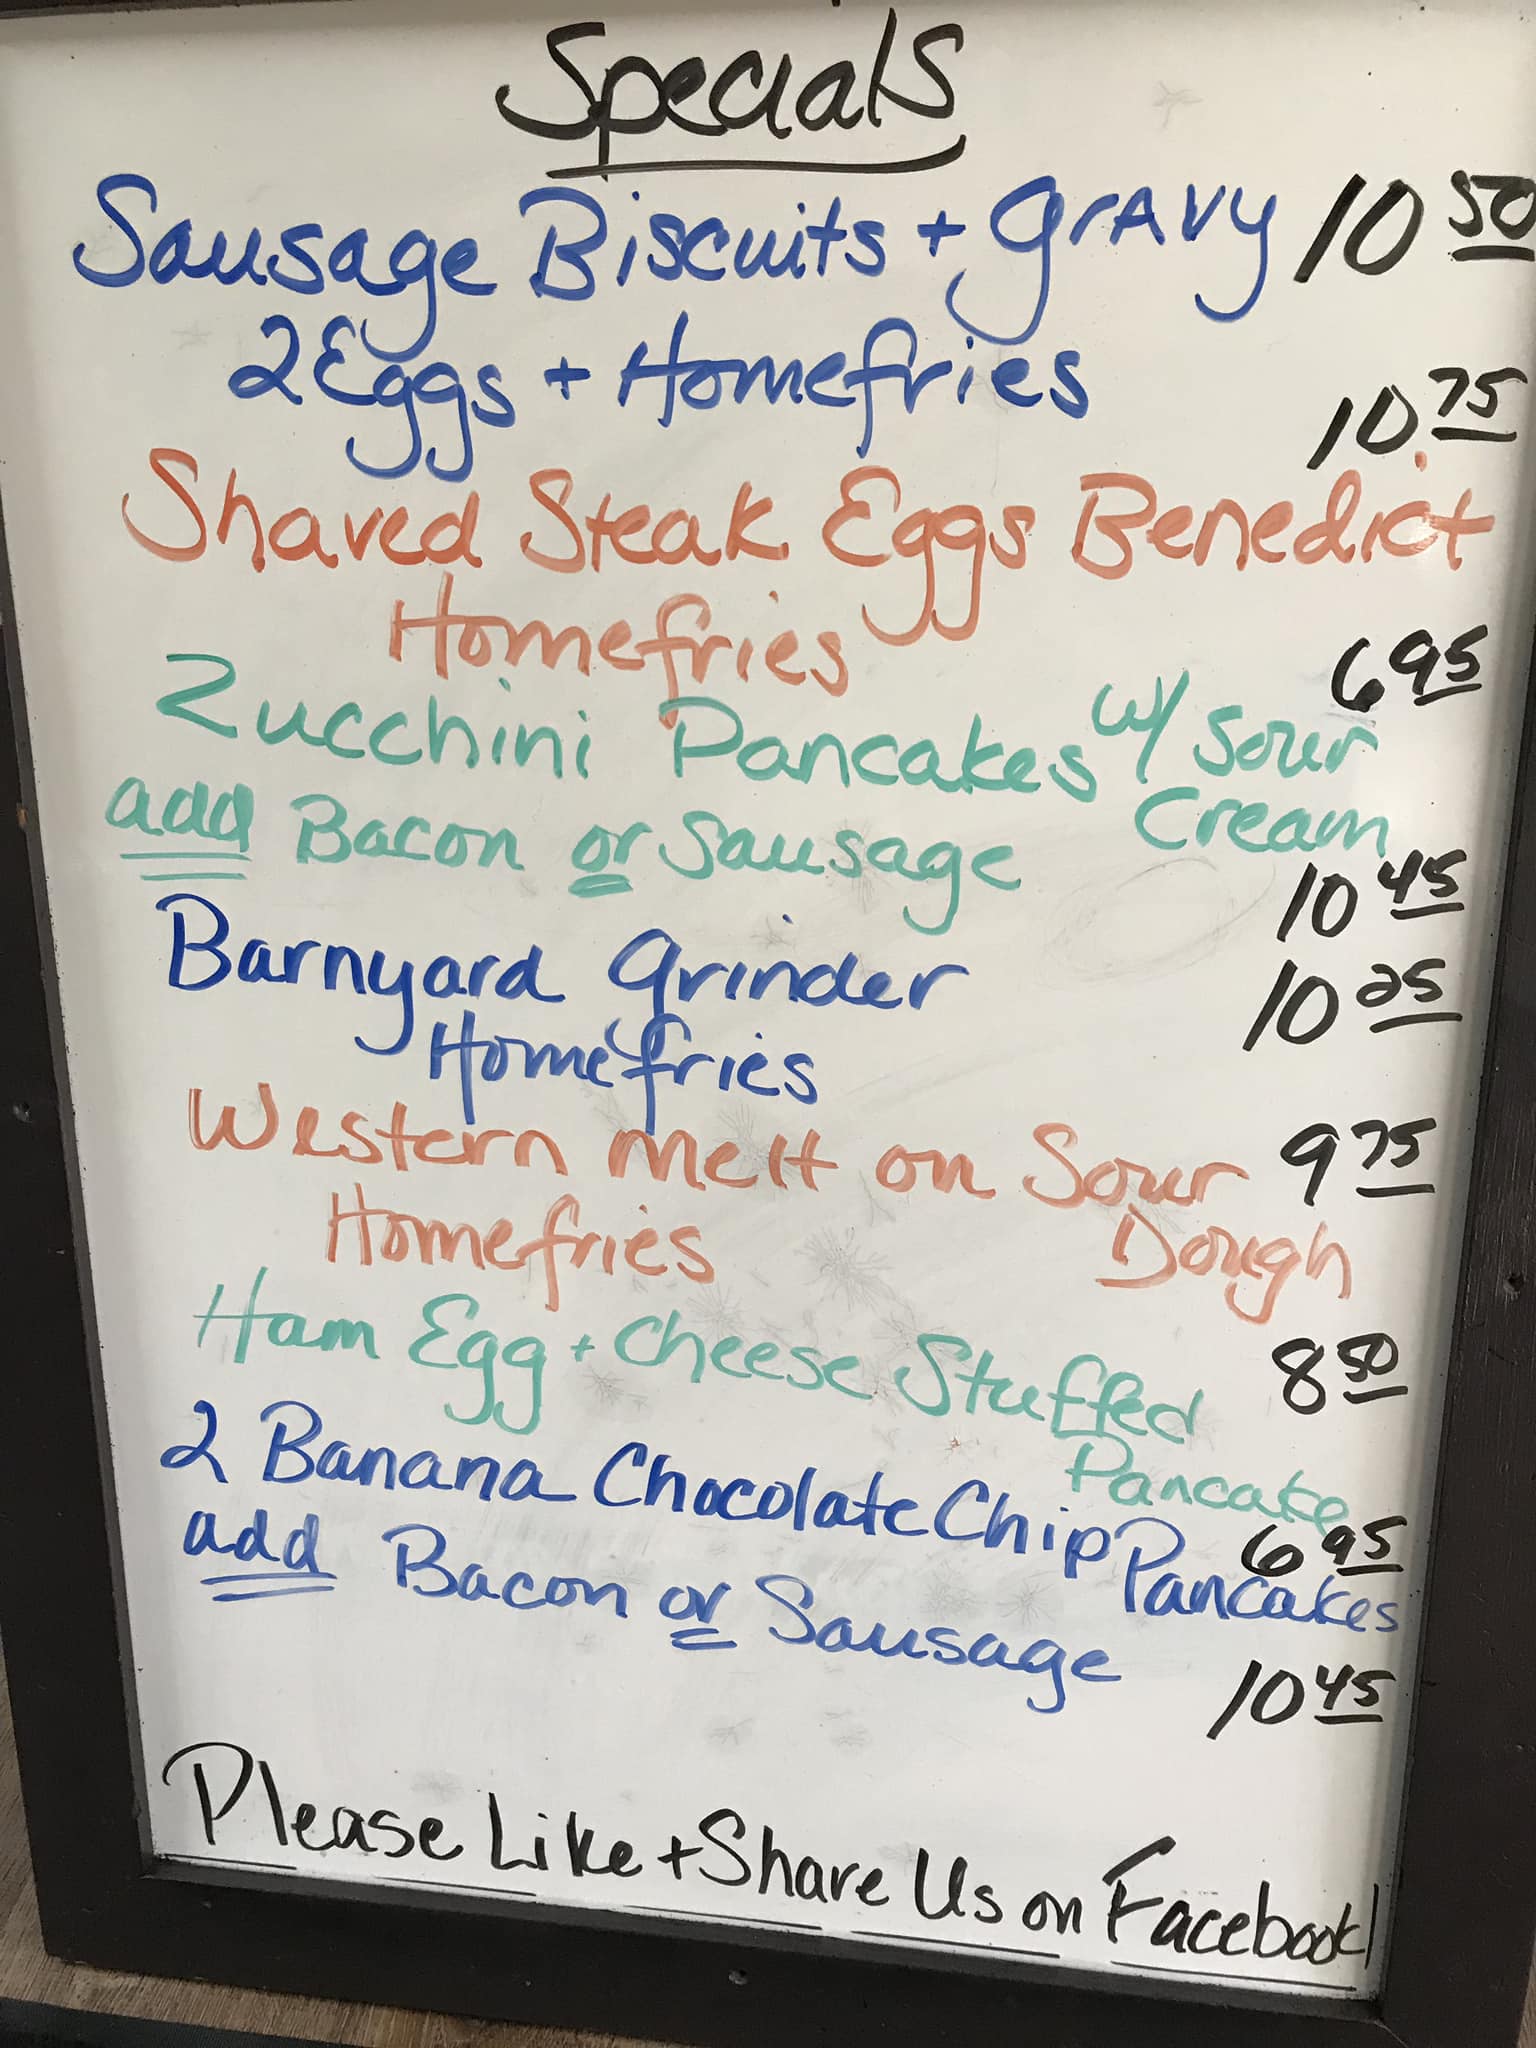 Specials
Sausage Biscuits + gravy 10 50
2 Eggs + Homefries
10.75
Shaved Steak Eggs Benedict
Homefries
6 95
Zucchini Pancakes w/ Sour
Cream
add Bacon or Sausage
10 45
Barnyard Grinder 10 25
Homefries
Western Melt on Sour 9 75
Dough
Homefries
Ham Egg + Cheese Stuffed 8 50
Pancake
2 Banana Chocolate Chip Pancakes 6 95
add Bacon or Sausage
10 45
Please Like + Share Us on Facebook!